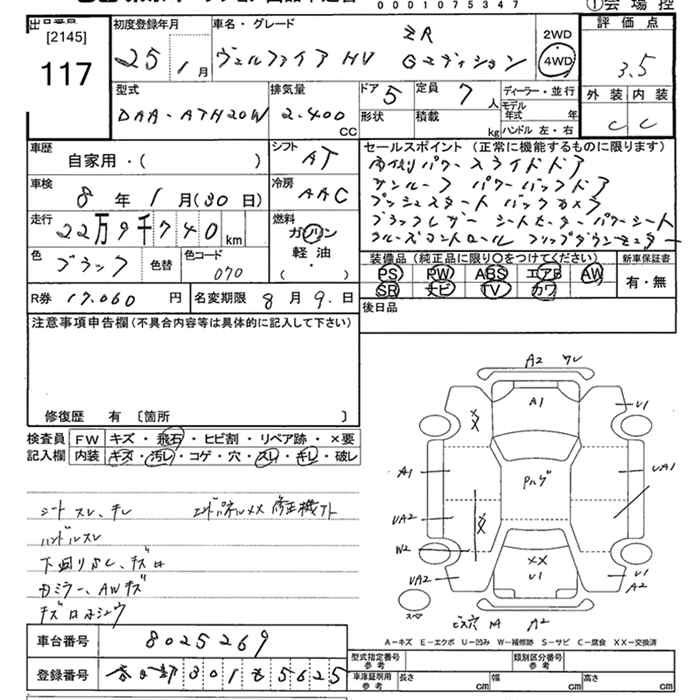 0001075347
①会場控
出品番号
[2145]
117
初度登録年月
25 1月
車名・グレード
ヴェルファイア HV
ZR
Gエディション
2WD
4WD
評価点
3.5
外装 内装
C C
型式
DAA-ATH20W
排気量
2.400
CC
ドア 5
定員 7 人
形状
積載
kg
ディーラー・並行
モデル年式 年
ハンドル 左・右
車歴
自家用・( )
シフト AT
車検
8年1月(30日)
冷房 AAC
走行
22万9千740
km
燃料
ガソリン
軽油
( )
色
ブラック
色替
色コード
070
R券 17.060 円
名変期限 8月9.日
セールスポイント (正常に機能するものに限ります)
両側パワースライドドア
サンルーフ パワーバックドア
プッシュスタート バックカメラ
ブラックレザーシートヒーター パワーシート
クルーズコントロール フリップダウンモニター
装備品(純正品に限り○をつけてください)
新車保証書
PS PW ABS エアB AW
SR ナビ TV カワ
有・無
後日品
注意事項申告欄(不具合内容等は具体的に記入して下さい)
修復歴 有 〔箇所 〕
検査員
記入欄
FW キズ・飛石・ヒビ割・リペア跡・×要
内装 キズ・汚レ・コゲ・穴・スレ・キレ・破レ
シート スレ、キレ
エンドパネルXX 修正機外
ハンドルスレ
下廻りサビ、キズ
ドアミラー、AWキズ
A2 ワレ
A1
U1
XX
A1
UA1
Pハゲ
UA2
XX
W2
XX
U1
UA2
A2
スペア
A2
A-キズ E-エクボ U-凹み W-補修跡 S-サビ C-腐食 XX-交換済
車台番号
8025269
登録番号
春日部 301 5625
型式指定番号
参考
類別区分番号
参考
車庫証明用
参考
長さ cm
幅 cm
高さ cm